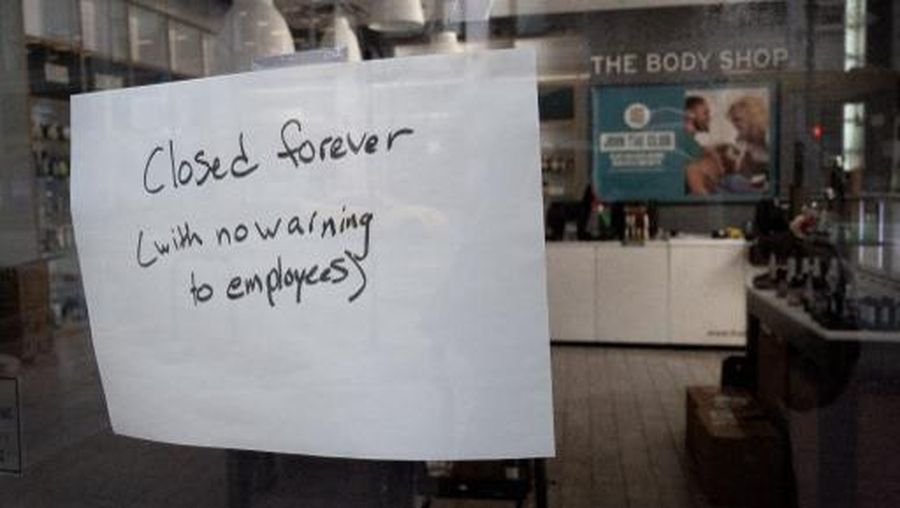 Closed forever
(with no warning
to employees)
THE BODY SHOP
JOIN THE CLUB